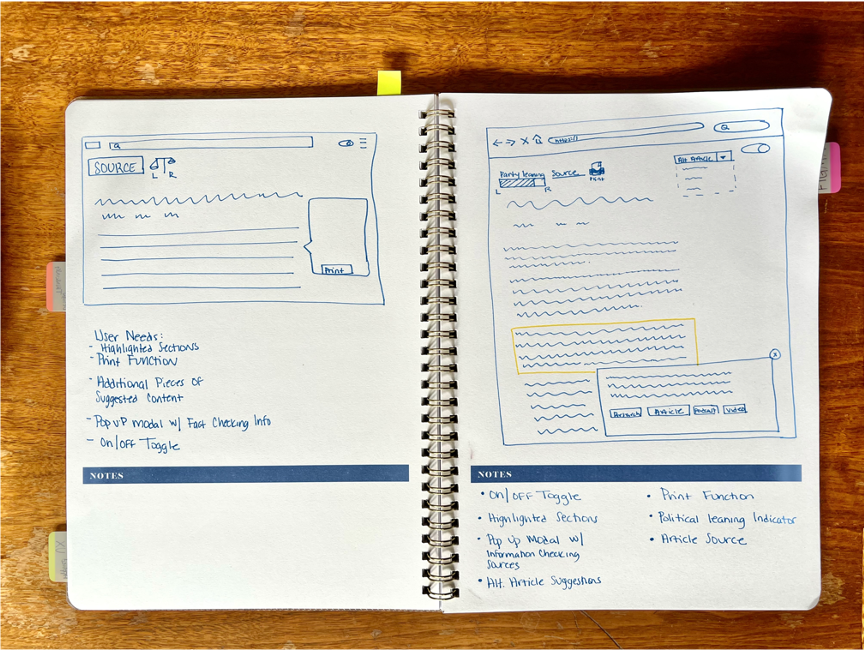 SOURCE
L R
Print
User Needs:
- Highlighted Sections
- Print Function
- Additional Pieces of
Suggested Content
- Pop up modal w/ Fact Checking Info
- On/Off Toggle
NOTES
Party leaning
L R
Source
Print
Alt Article
Article
Podcast
Video
NOTES
• On/OFF Toggle
• Highlighted Sections
• Pop up Modal w/
Information Checking
Sources
• Alt. Article Suggestions
• Print Function
• Political leaning Indicator
• Article Source